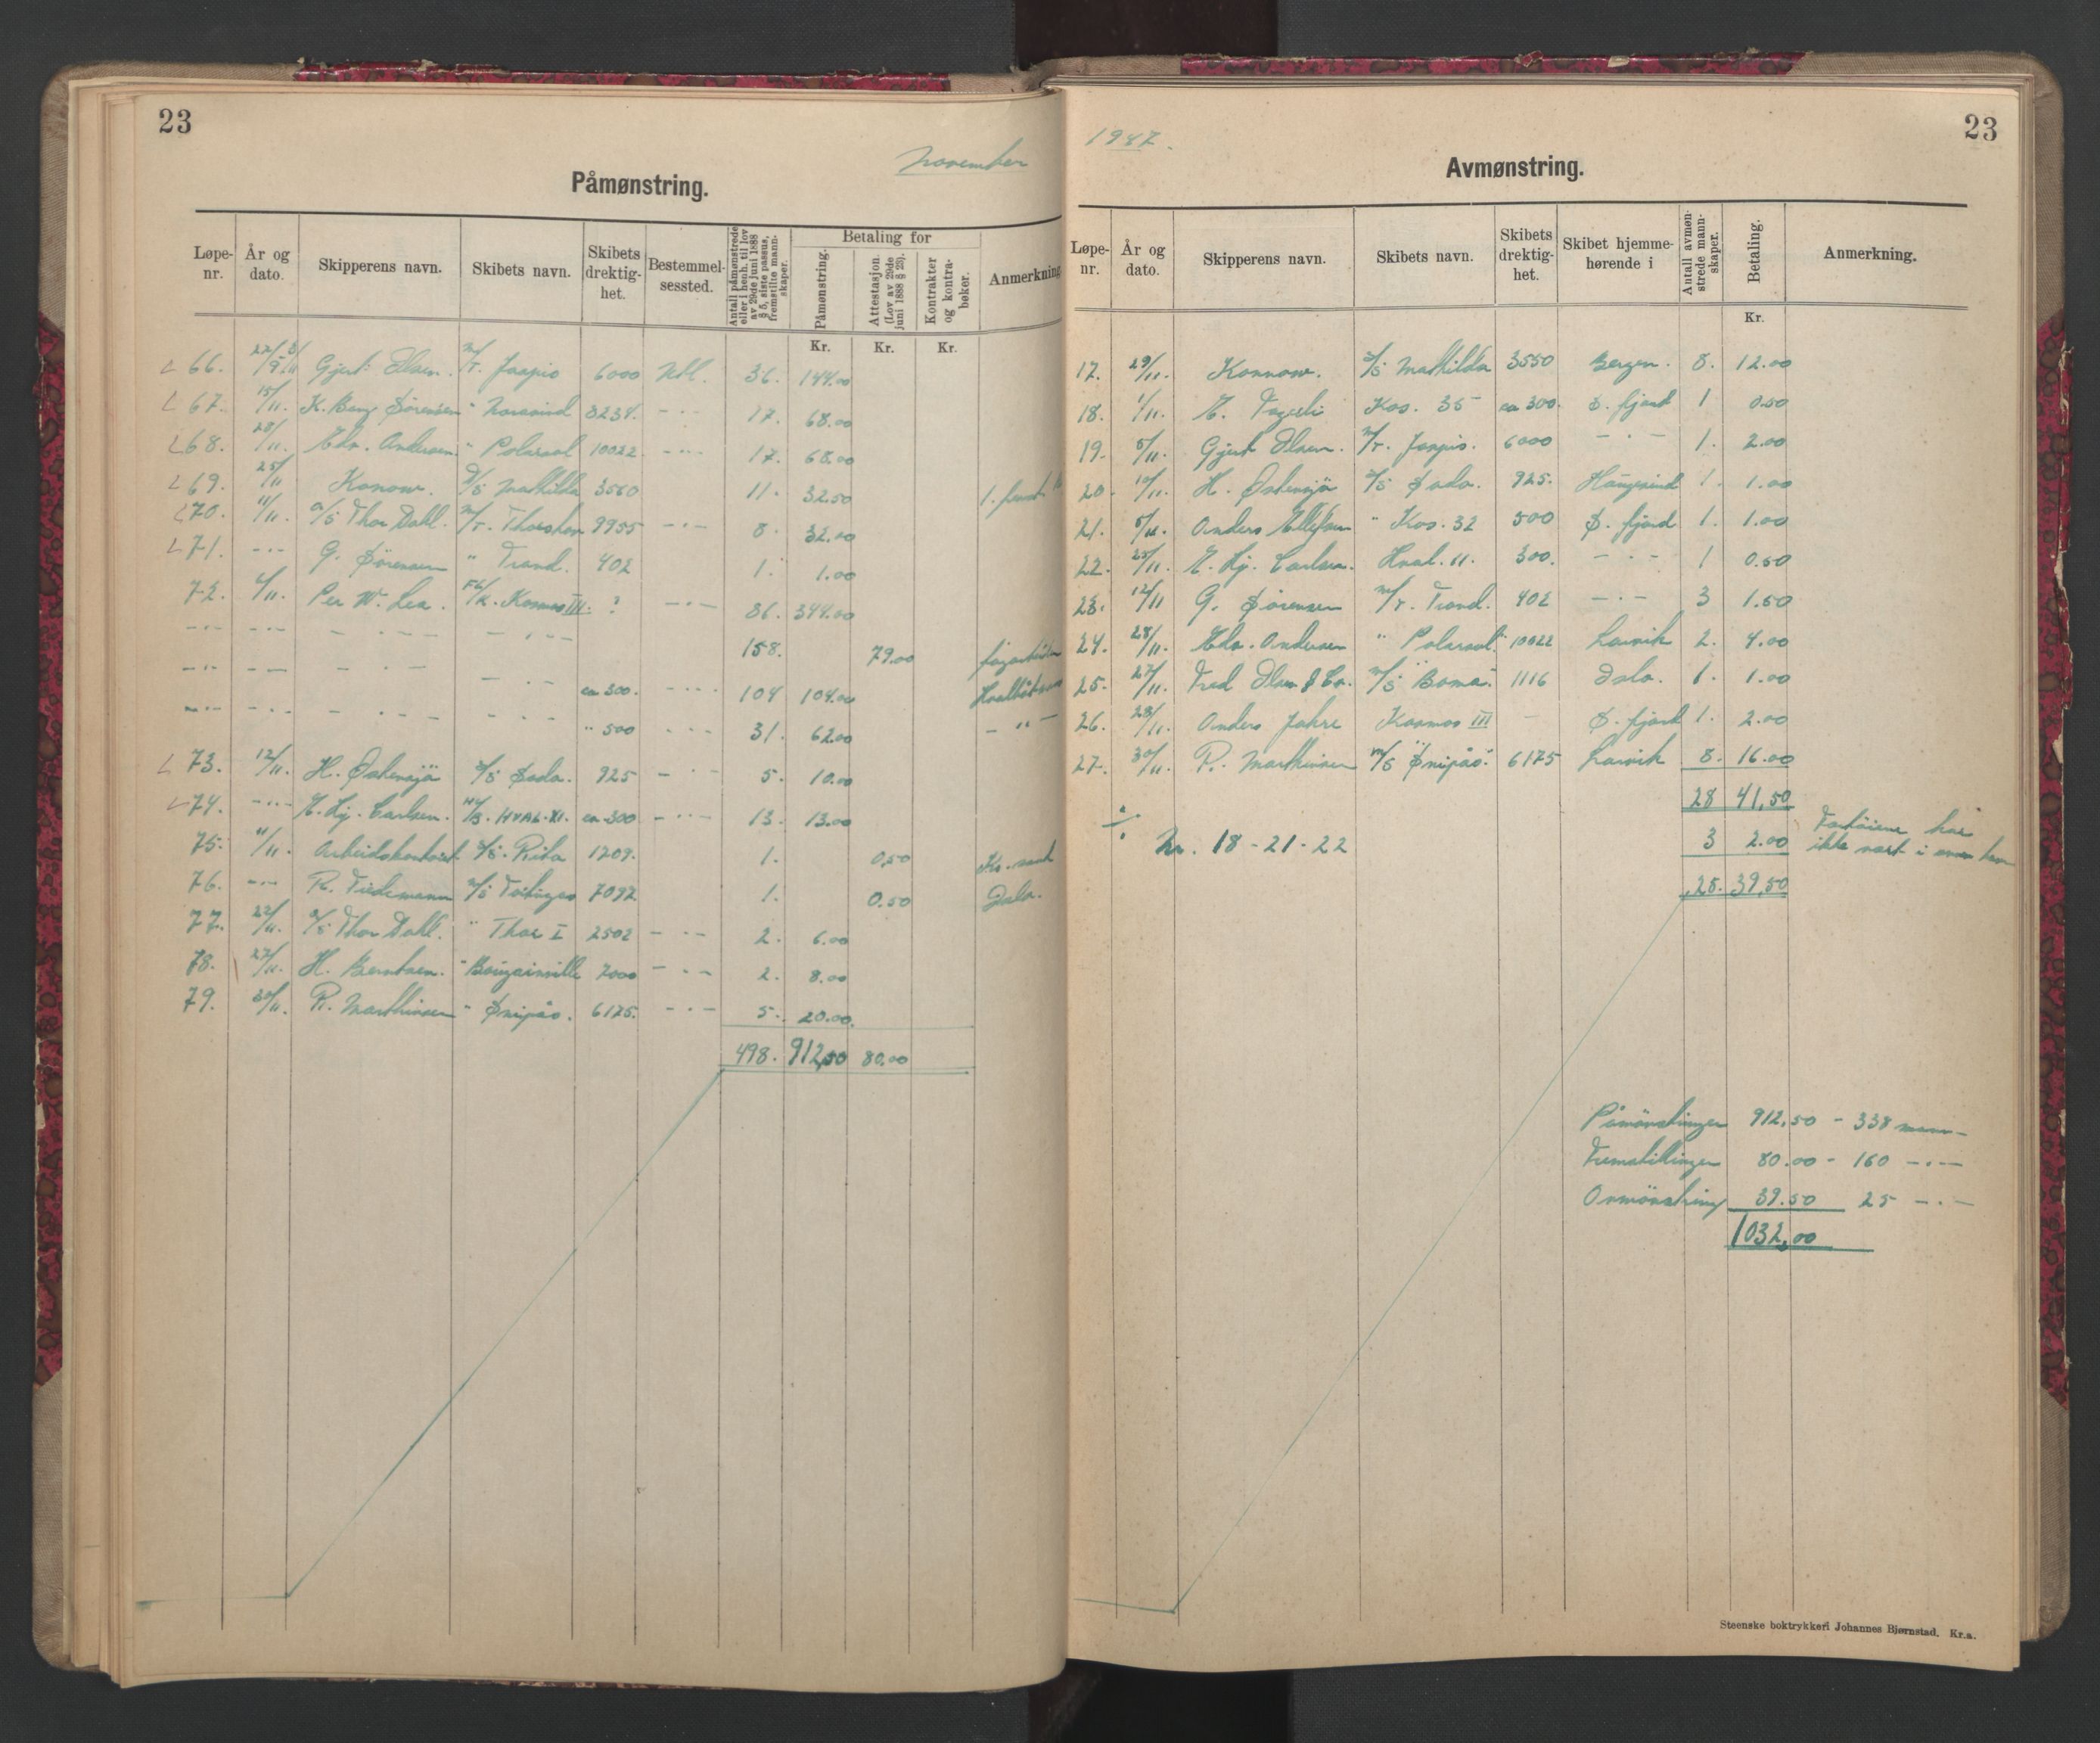 23
November
Påmønstring.
Løpe-nr. År og dato. Skipperens navn. Skibets navn. Skibets drektig-het. Bestemmel-sessted. Antall påmønstrede eller i henh. til lov av 29de juni 1888 § 5, siste passus, fremstilte mann-skaper. Betaling for Påmønstring. Attestasjon (Lov av 29de juni 1888 § 23). Kontrakter og kontra-bøker. Anmerkning
Kr. Kr. Kr.
66. Gjert Olsen. M/T. Jaspis 6000 Utl. 36. 144.00
67. 15/11. K. Berg Sørensen " Norsvind 8234. - " - 17. 68.00
68. 28/11. Edv. Andersen " Polarsol 10022 - " - 17. 68.00
69. 25/11 Konow. D/S Mathilda 3550 11. 32.50
70. 11/11. A/S Thor Dahl. M/T. Thorshov 9955 - " - 8. 32.00
71. - " - G. Sørensen " Trand. 402 1. 1.00
72. 4/11. Per W. Lea. Fl/K. Kosmos III. ? - " - 86. 344.00
- " - - " - - " - - " - 158. 79.00
- " - - " - - " - - " - ca 300. - " - 104 104.00
- " - - " - - " - - " - " 500 - " - 31. 62.00 - " -
73. 12/11. H. Østensjø S/S Sada. 925 - " - 5. 10.00
74. - " - E. Hj. Carlsen. Hv/B. HVAL. XI. ca 300 - " - 13. 13.00
75. 11/11. Arbeidskontoret S/S. Rita 1209. 1. 0,50 Kr. sand
76. - " - R. Tiedemann M/S 7092 1. 0.50 Oslo.
77. 22/11. A/S Thor Dahl. " Thor I 2502 - " - 2. 6.00
78. 27/11. H. Berntsen. " Bougainville 7000 - " - 2. 8.00
79. 30/11. R. Marthinsen " Snipås. 6175. - " - 5. 20.00.
498. 912,50 80.00
23
1947.
Avmønstring.
Løpe-nr. År og dato. Skipperens navn. Skibets navn. Skibets drektig-het. Skibet hjemme-hørende i Antall avmøn-strede mann-skaper. Betaling. Anmerkning.
Kr.
17. 29/11. Konnow. S/S Mathilda 3550 Bergen. 8. 12.00
18. 1/11. E. Kos. 35 ca 300. S. fjord 1 0.50
19. 5/11. Gjert Olsen. M/T. Jaspis. 6000 - " - 1. 2.00
20. 10/11. H. Østensjø S/S Sada. 925. Haugesund 1. 1.00
21. 5/11. Anders Ellefsen " Kos. 32 500 S. fjord 1. 1.00
22. 25/11. E. Hj. Carlsen. Hval. 11. 300. - " - 1 0.50
23. 12/11 G. Sørensen M/T. Trand. 402 - " - 3 1.50
24. 28/11. Edv. Andersen " Polarsol" 10022 Larvik 2. 4.00
25. 27/11. Fred Olsen & Co. M/S Bomă. 1116 Oslo. 1. 1.00
26. 28/11. Anders Jahre Kosmos III - S. fjord 1. 2.00
27. 30/11. R. Marthinsen M/S "Snipås" 6175 Larvik 8. 16.00
28 41,50
÷ Nr. 18 - 21 - 22 3 2.00 Fartøiene har
ikke vært i
25. 39,50
Påmönstringer 912,50 - 338 mann -
Fremstillinger 80.00 - 160 - " -
Avmönstring 39.50 25 - " -
1032,00
Steenske boktrykkeri Johannes Bjørnstad. Kr.a.